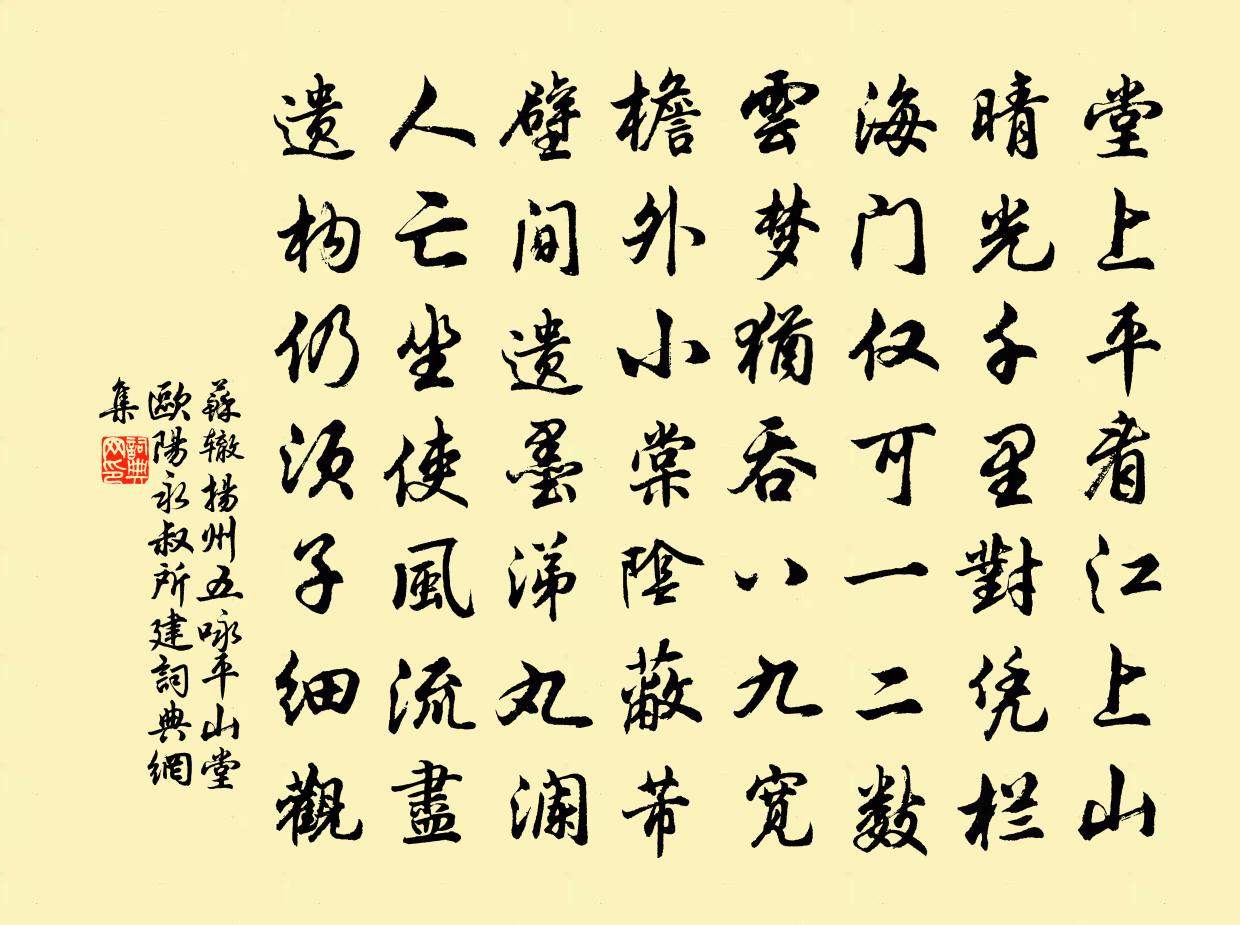 堂上平看江上山
晴光千里對凭栏
海门仅可一二数
雲梦猶吞八九宽
檐外小棠陰蔽芾
壁间遗墨涕丸澜
人亡坐使風流盡
遗构仍须子细觀
蘇辙揚州五咏平山堂
歐陽永叔所建詞典網
集
詞典网印